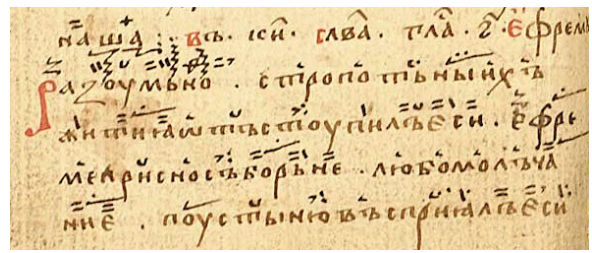 наша : въ . и҃сїи . слва . гла . г҃ . Ефремъ
Разоумьно . стропотьныихъ
житиꙗ ѿтъстоупилъ Еси . Ефре
ме крисносъборьне . любомолъча
ниЕ . поустынювъсприꙗлъ Еси